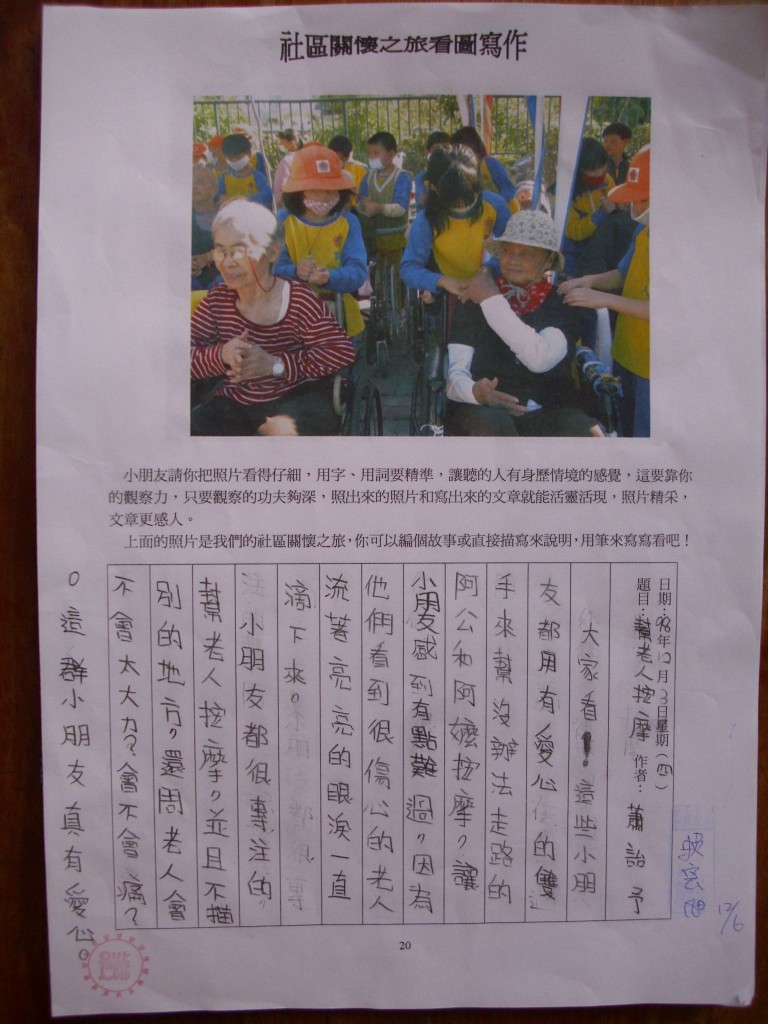 社區關懷之旅看圖寫作
小朋友請你把照片看得仔細，用字、用詞要精準，讓聽的人有身歷情境的感覺，這要靠你
的觀察力，只要觀察的功夫夠深，照出來的照片和寫出來的文章就能活靈活現，照片精采，
文章更感人。
上面的照片是我們的社區關懷之旅，你可以編個故事或直接描寫來說明，用筆來寫寫看吧！
日期：98年12月3日星期（四）
題目：幫老人按摩 作者：蕭詒予
大家看！這些小朋
友都用有愛心的雙
手來幫沒辦法走路的
阿公和阿嬤按摩，讓
小朋友感到有點難過，因為
他們看到很傷心的老人
流著亮亮的眼淚一直
滴下來。
小朋友都很專注的，
幫老人按摩，並且不描
別的地方，還問老人會
不會太大力？會不會痛？
。這群小朋友真有愛心。
12/6
20